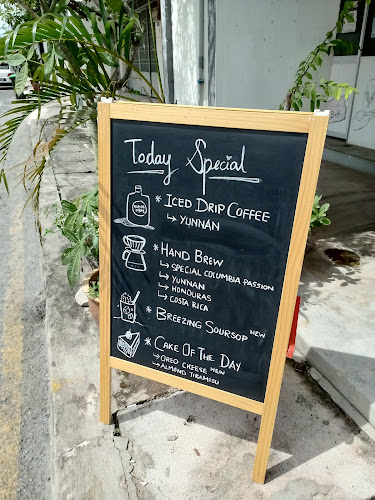 Today Special
* ICED DRIP COFFEE
↳ YUNNAN
* HAND BREW
↳ SPECIAL COLUMBIA PASSION
↳ YUNNAN
↳ HONOURAS
↳ COSTA RICA
* BREEZING SOURSOP NEW
* CAKE OF THE DAY
↳ OREO CHEESE NEW
↳ ALMOND TIRAMISU